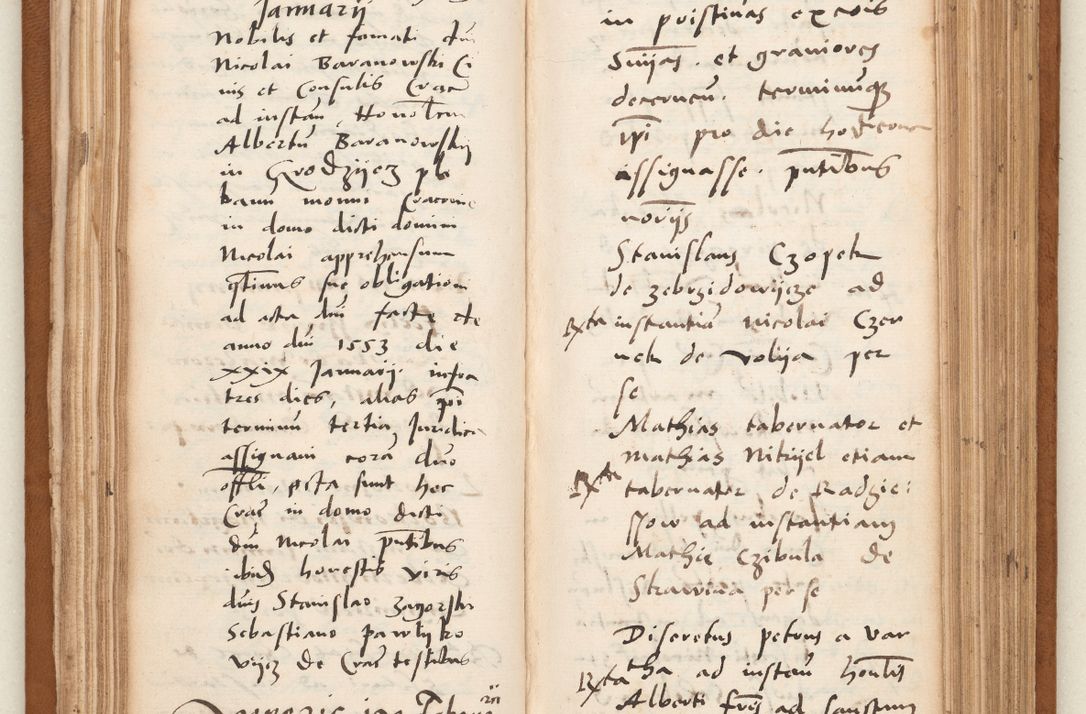 Januarij
Nobilis et famati dni
Nicolai Baranowski Ci
uis et Consulis Crac
ad instan Honorabilem
Albertu Baranowskij
in Grodzijecz ple
banu monui Cracouie
in domo dicti domini
Nicolai apprehensum
qtinus sue obligationi
ad acta dni facte etc
anno dni 1553 die
xxix Januarij infra
tres dies, alias pri
terminu tertia Juridica
assignaui cora dno
offli, acta sunt hec
Crac in domo dicti
dni Nicolai pntibus
ibid honestis viris
dnis Stanislao Zagorski
Sebastiano Pawlijko
vijcz de Crac testibus
in pristinas excois
Snijas et grauiores
decerneu. terminuque
ipi pro die hodierna
assignasse. pntibus
norijs
Stanislaus Czopek
de Zebrzidowijcze ad
Rxta instantia Nicolai Czer
nek de Volija per
se
Mathias tabernator et
Mathias Nikijel etiam
Rxta tabernator de Radzie
jow ad instantiam
Mathie Czibula de
Strawina per se
Discretus petrus a Var
Rxta tha ad instan honlis
Alberti ad Sanctum